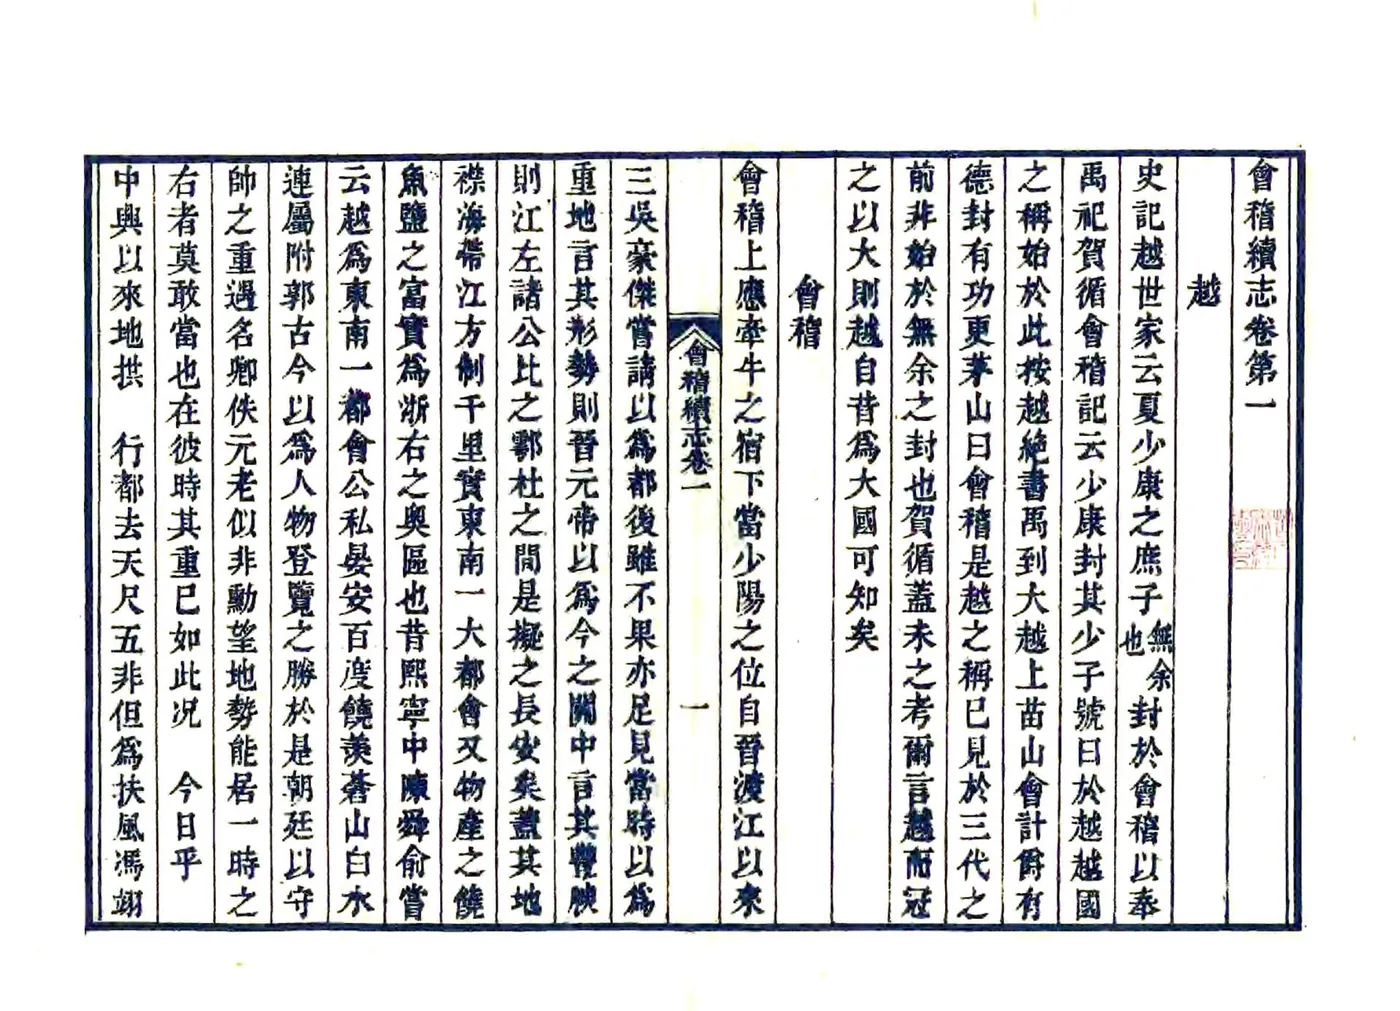 會稽續志卷第一
越
史記越世家云夏少康之庶子無余也封於會稽以奉
禹祀賀循會稽記云少康封其少子號曰於越越國
之稱始於此按越絶書禹到大越上苗山會計爵有
德封有功更茅山曰會稽是越之稱已見於三代之
前非始於無余之封也賀循蓋未之考爾言越而冠
之以大則越自昔爲大國可知矣
會稽
會稽上應牽牛之宿下當少陽之位自晉渡江以來
會稽續志卷一
一
三吳豪傑嘗請以爲都後雖不果亦足見當時以爲
重地言其形勢則晉元帝以爲今之關中言其豐腴
則江左諸公比之鄠杜之間是擬之長安矣蓋其地
襟海帶江方制千里實東南一大都會又物產之饒
魚鹽之富實爲浙右之奥區也昔熙寧中陳舜俞嘗
云越爲東南一都會公私晏安百度饒羨蒼山白水
連屬附郭古今以爲人物登覽之勝於是朝廷以守
帥之重遇名卿佚元老似非勳望地勢能居一時之
右者莫敢當也在彼時其重已如此况 今日乎
中興以來地拱 行都去天尺五非但爲扶風馮翊